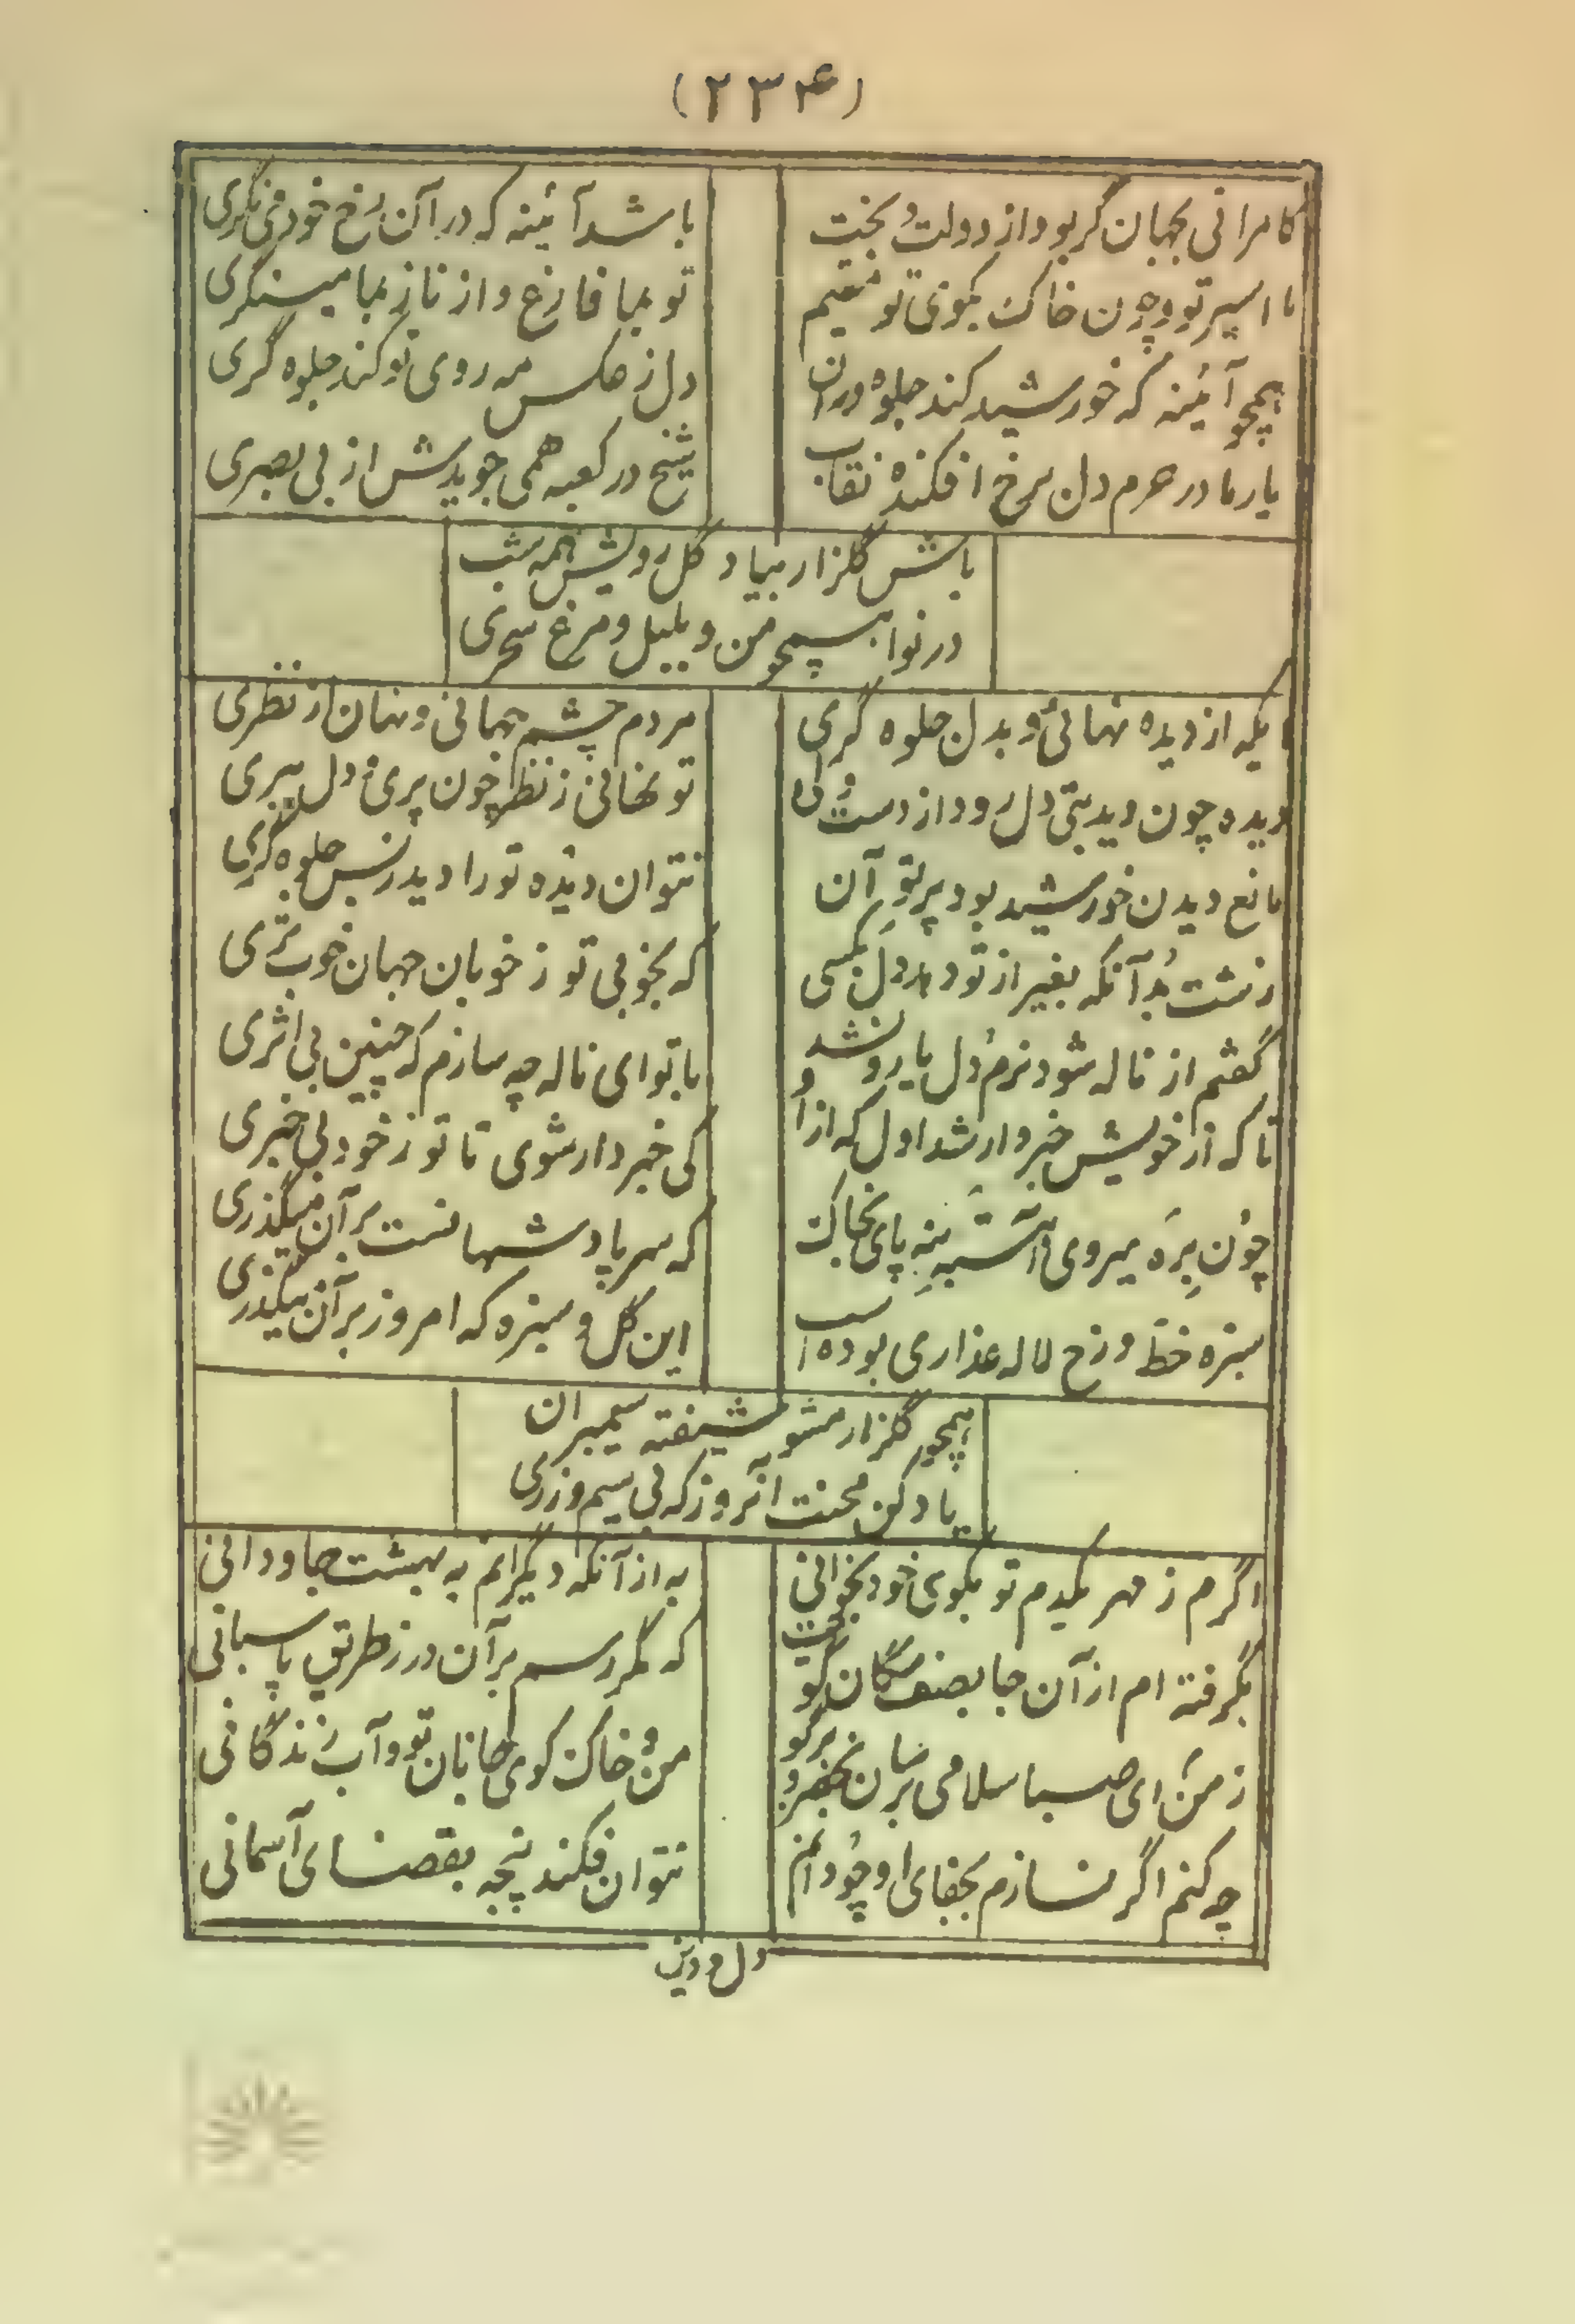 (۲۳۴)
کامرانی بجهان گر بود از دولت و بخت
باشد آئینه که در آن رخ خود می نگری
ما اسیر تو و چون خاک بکوی تو مقیم
تو بما فارغ و از ناز بما مینگری
همچو آئینه که خورشید کند جلوه در آن
دل ز عکس مه روی تو کند جلوه گری
یار ما در حرم دل برخ افکنده نقاب
شیخ در کعبه همی جویدش از بی بصری
باش گلزار بیاد گل رویش همه شب
در نوا همچو من و بلبل و مرغ سحری
ایکه از دیده نهانی و بدل جلوه گری
مردم چشم جهانی و نهان از نظری
دیده چون دید بتی دل رود از دست ولی
تو نهانی ز نظر چون پری و دل ببری
مانع دیدن خورشید بود پرتو آن
نتوان دیده تو را دید ز بس جلوه گری
زشت بد آنکه بغیر از تو دهد دل بکسی
که بخوبی تو ز خوبان جهان خوب تری
گفتم از ناله شود نرم دل یار و نشد
با تو ای ناله چه سازم که چنین بی اثری
تا که از خویش خبردار شد اول که از او
کی خبردار شوی تا تو ز خود بی خبری
چون بره میروی آهسته بنه پای بخاک
که سر پادشهانست بر آن میگذری
سبزه خط و رخ لاله عذاری بوده است
این گل و سبزه که امروز بر آن میگذری
همچو گلزار مشو شیفته سیمبران
یاد کن محنت آنروز که بی سیم و زری
اگرم ز مهر یکدم تو بکوی خود بخوانی
به از آنکه دیگرانم به بهشت جاودانی
بگرفته ام از آن جا بصف سگان کویت
که مگر رسم بر آن در ز طریق پاسبانی
ز من ای صبا سلامی برسان بخضر و برگو
من و خاک کوی جانان تو و آب زندگانی
چه کنم اگر نسازم بجفای او چو دانم
نتوان فکند پنجه بقضای آسمانی
دل و دین